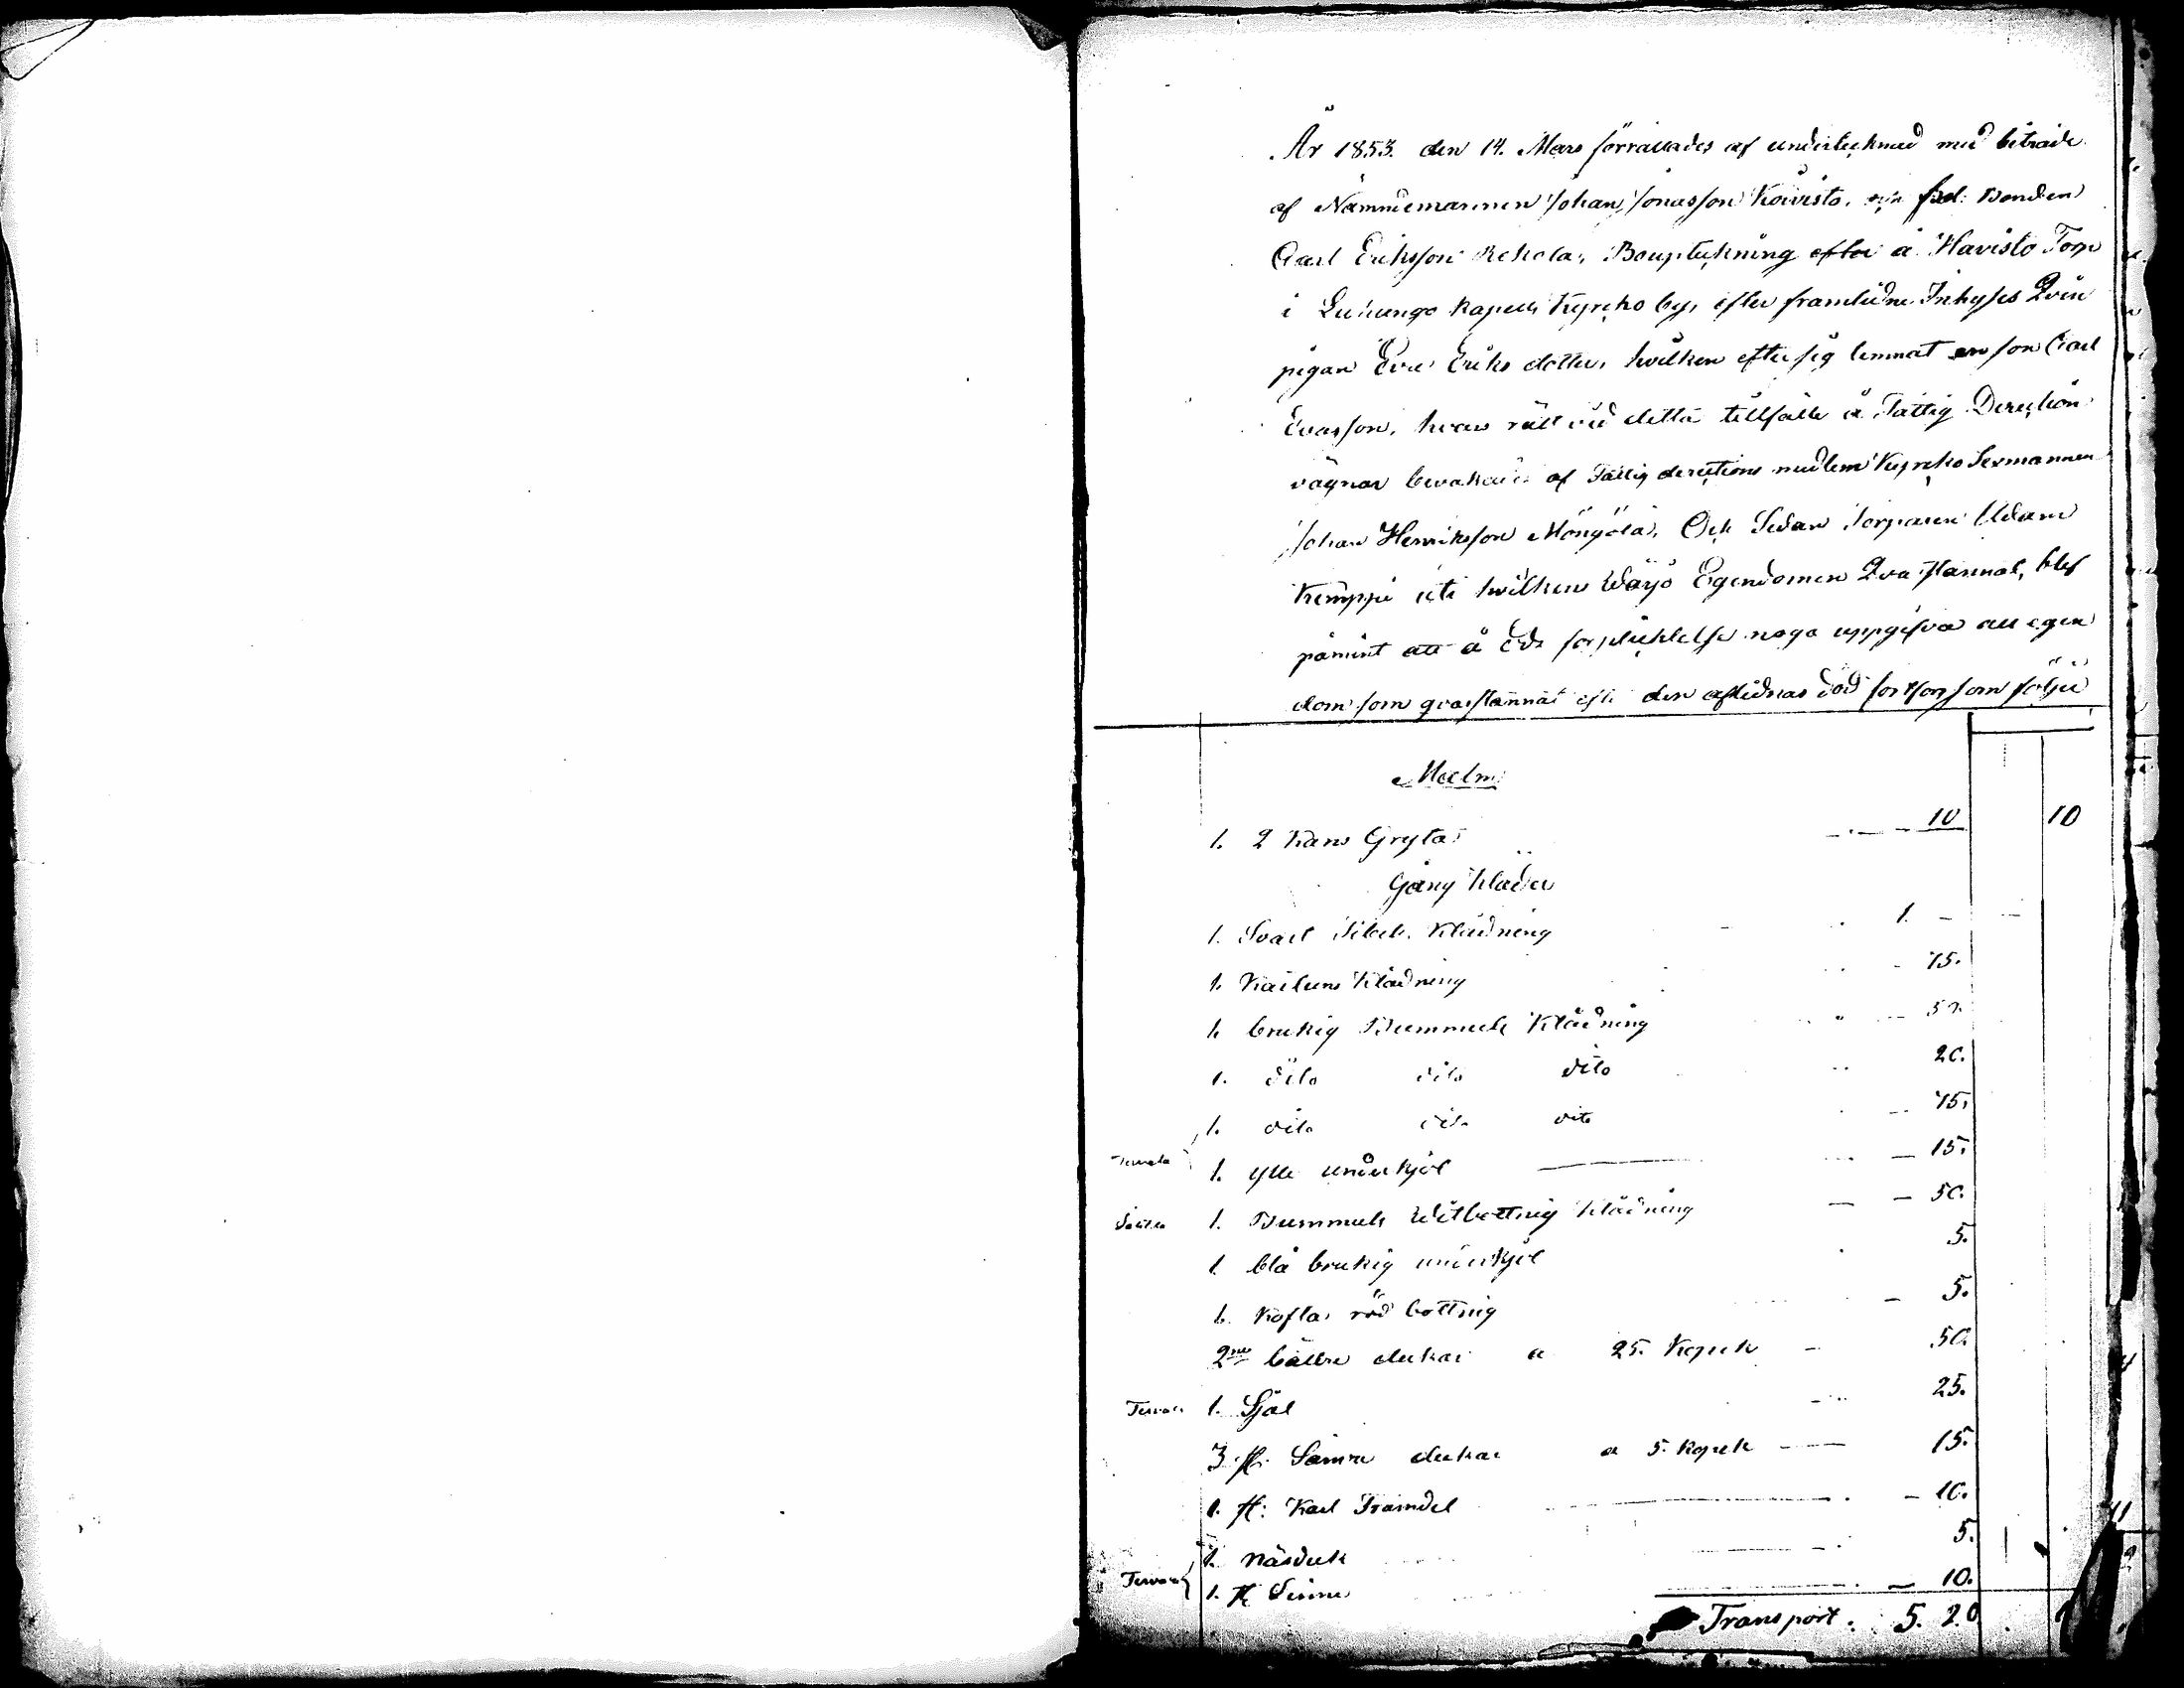 År 1853. den 14. Mars förrättades af undertecknad med biträde
af Nämndemannen Johan Jonasson Koivisto, och fred: Bonden
Carl Eriksson Rekola, Bouptekning efter å Havisto Torp
i Luhango Kapells Kyrcko by, efter framledne Inhyses Qvin
pigan Eva Eriks dotter, hvilken efter sig lemnat en son Carl
Evasson, hvars rätt vid detta tillfälle å Fattig Direction
vägnar bevakades af Fattig directions medlem Kyrcko Sexmannen
Johan Henriksson Möngölä, Och Sedan Torparen Adam
Kemppi uti hvilken Värjo Egendomen Qvarstannat, blef
påmint att å Eds förplicktelse noga uppgifva all egen
dom som qvarstannat efter den aflidnas död fortfor som följer
Malm
1. 2 Kans Gryta 10 10
Gång Kläder
1. Svart Sibets Klädning 1. –
1. Kattuns Klädning 75.
1. brukig Bummuls Klädning 50.
1. dito dito dito 20.
1. dito dito dito 75.
1. ylle underkjol 15.
1. Bummuls Witbottnig Klädning 50.
1. blå brukig underkjol 5.
1. Kofta röd bottnig 5.
2ne bättre dukar a 25. Kopek 50.
Tervola 1. Sjal 25.
3 st. Sämre dukar a 5. kopek 15.
1. st: Karl 10.
1. näsduk 5.
Tervola 1. st 10.
Transport. 5. 20